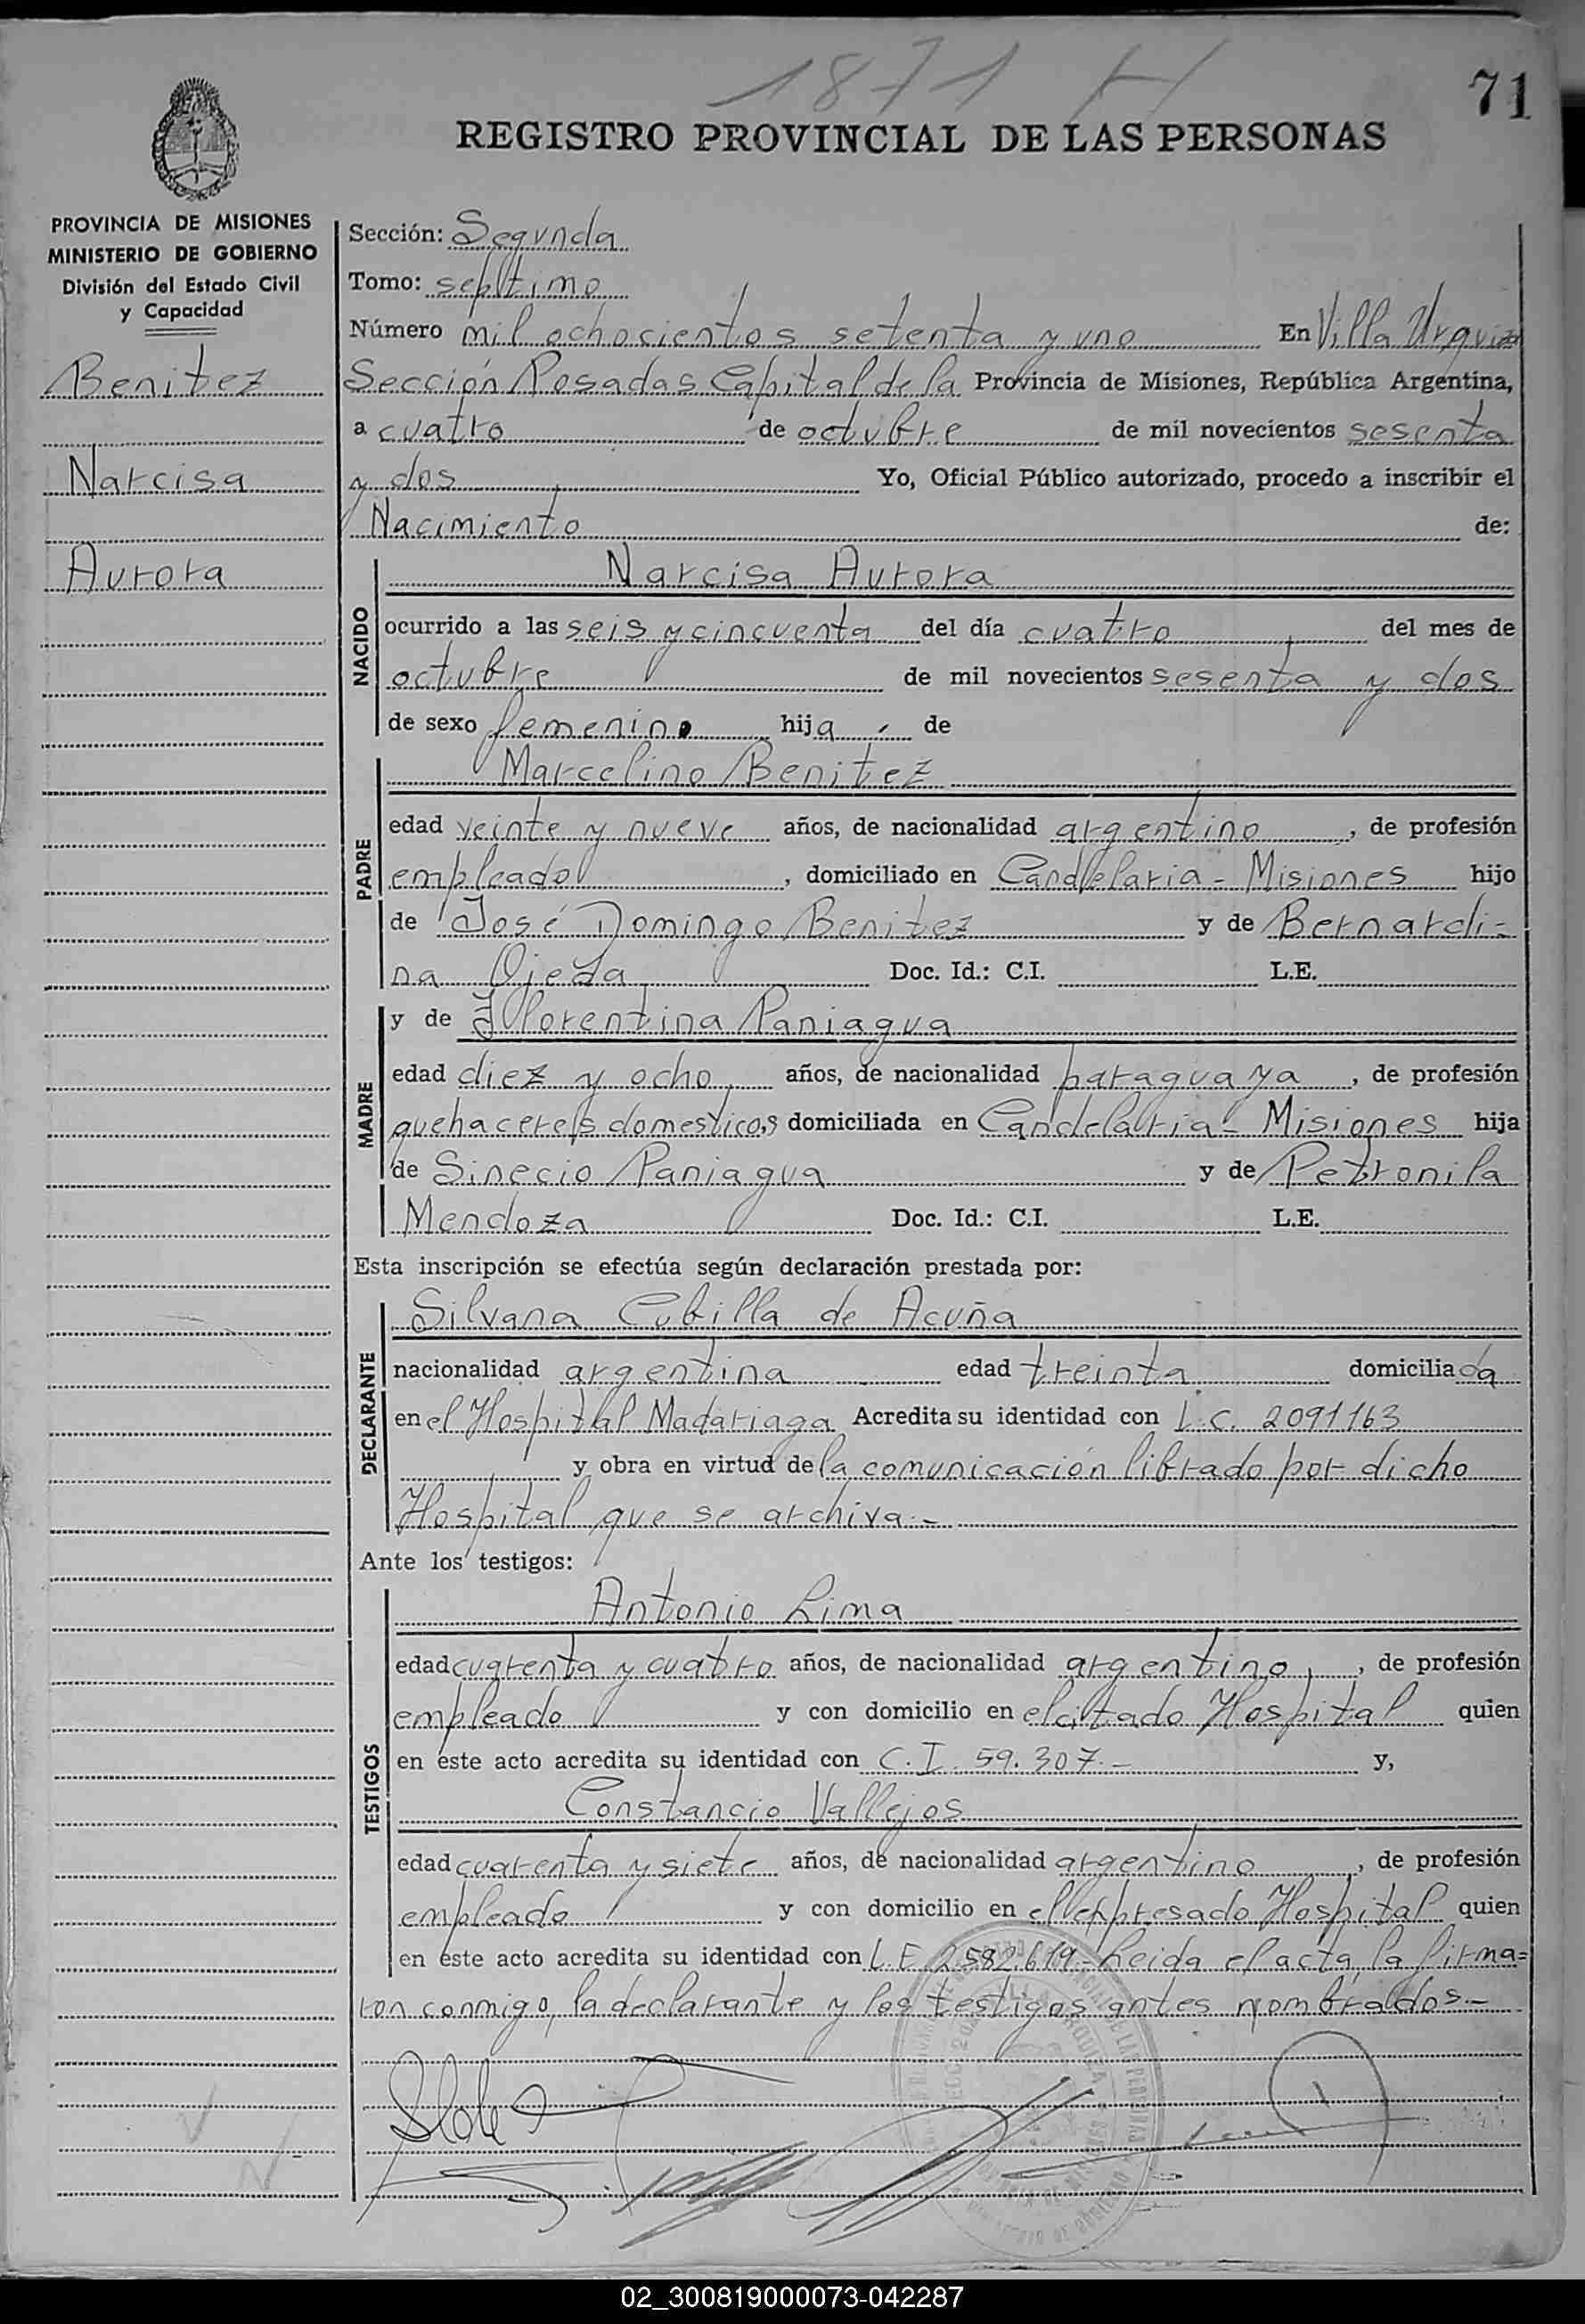 1871 H
71
REGISTRO PROVINCIAL DE LAS PERSONAS
PROVINCIA DE MISIONES
MINISTERIO DE GOBIERNO
División del Estado Civil
y Capacidad
Benitez
Narcisa
Aurora
Sección: Segunda
Tomo: septimo
Número mil ochocientos setenta y uno En Villa Urquiza
Sección Posadas Capital de la Provincia de Misiones, República Argentina,
a cuatro de octubre de mil novecientos sesenta
y dos Yo, Oficial Público autorizado, procedo a inscribir el
Nacimiento de:
NACIDO
Narcisa Aurora
ocurrido a las seis y cincuenta del día cuatro del mes de
octubre de mil novecientos sesenta y dos
de sexo femenino hija de
PADRE
Marcelino Benitez
edad veinte y nueve años, de nacionalidad argentino, de profesión
empleado, domiciliado en Candelaria - Misiones hijo
de José Domingo Benitez y de Bernardi-
na Ojeda Doc. Id.: C.I. L.E.
MADRE
y de Florentina Paniagua
edad diez y ocho años, de nacionalidad paraguaya, de profesión
quehaceres domesticos domiciliada en Candelaria - Misiones hija
de Sinecio Paniagua y de Petronila
Mendoza Doc. Id.: C.I. L.E.
Esta inscripción se efectúa según declaración prestada por:
DECLARANTE
Silvana Cubilla de Acuña
nacionalidad argentina edad treinta domiciliada
en el Hospital Madariaga Acredita su identidad con L.C. 2091163
y obra en virtud de la comunicación librado por dicho
Hospital que se archiva.-
Ante los testigos:
TESTIGOS
Antonio Lima
edad cuarenta y cuatro años, de nacionalidad argentino, de profesión
empleado y con domicilio en el citado Hospital quien
en este acto acredita su identidad con C.I. 59.307.- y,
Constancio Vallejos
edad cuarenta y siete años, de nacionalidad argentino, de profesión
empleado y con domicilio en el expresado Hospital quien
en este acto acredita su identidad con L.E. 2.582.619.- Leida el acta, la firma=
ron conmigo, la declarante y los testigos antes nombrados.-
02_300819000073-042287